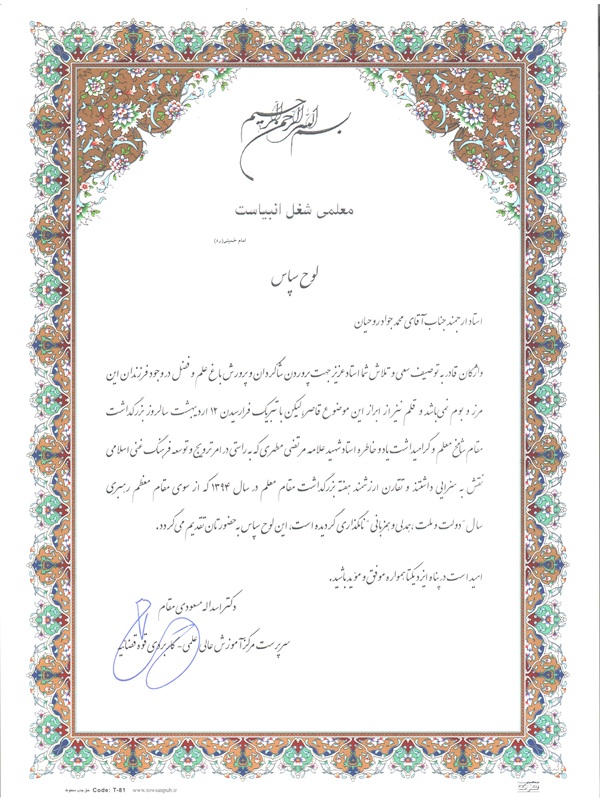 بسم الله الرحمن الرحیم
معلمی شغل انبیاست
امام خمینی(ره)
لوح سپاس
استاد ارجمند جناب آقای محمد جواد روحیان
واژگان قادر به توصیف سعی و تلاش شما استاد عزیز جهت پروردن شاگردان و پرورش باغ علم و فضل در وجود فرزندان این
مرز و بوم نمی‌باشد و قلم نیز از ابراز این موضوع قاصر، لیکن با تبریک فرارسیدن ۱۲ اردیبهشت سالروز بزرگداشت
مقام شامخ معلم و گرامیداشت یاد و خاطره استاد شهید علامه مرتضی مطهری که به راستی در امر ترویج و توسعه فرهنگ غنی اسلامی
نقش به سزایی داشتند و تقارن ارزشمند هفته بزرگداشت مقام معلم در سال ۱۳۹۴ که از سوی مقام معظم رهبری
سال "دولت و ملت، همدلی و همزبانی" نامگذاری گردیده است، این لوح سپاس به حضورتان تقدیم می‌گردد.
امید است در پناه ایزد یکتا همواره موفق و مؤید باشید.
دکتر اسداله مسعودی مقام
سرپرست مرکز آموزش عالی علمی - کاربردی قوه قضائیه
حق چاپ محفوظ Code: T-81 www.towsanpub.ir